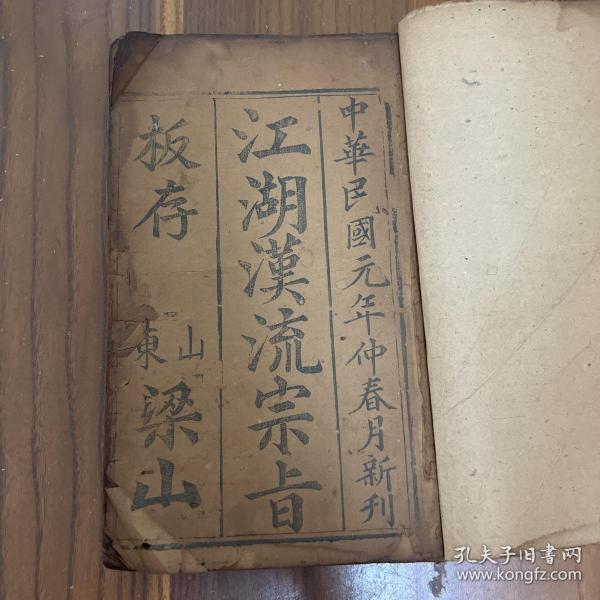 中華民國元年仲春月新刊
江湖漢流宗旨
板存
山東
梁山
孔夫子旧书网
www.kongfz.com